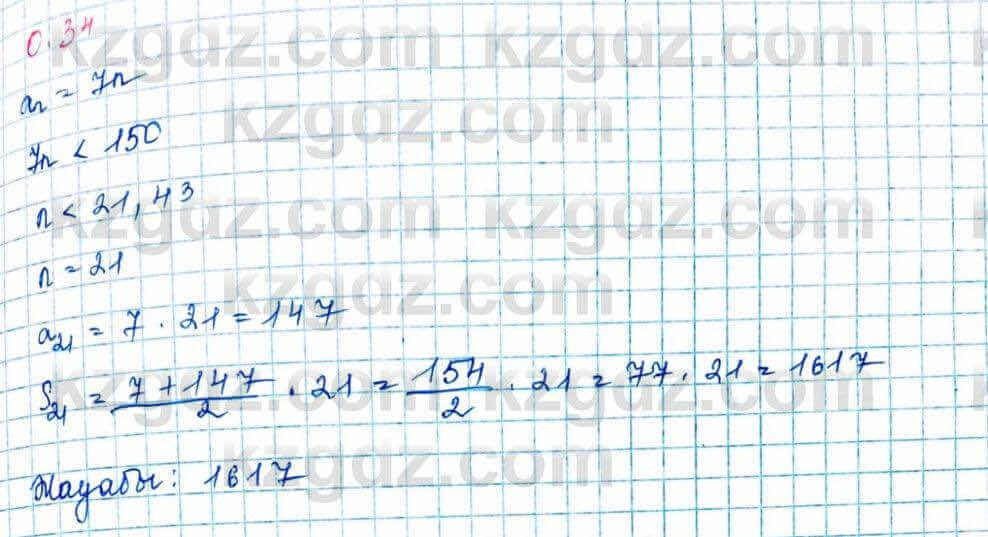 0.34
aₙ = 7n
7n < 150
n < 21,43
n = 21
a₂₁ = 7 · 21 = 147
S₂₁ = (7 + 147)/2 · 21 = 154/2 · 21 = 77 · 21 = 1617
Жауабы: 1617
kzgdz.com kzgdz.com
kzgdz.com
kzgdz.com kzgdz.com
kzgdz.com
kzgdz.com kzgdz.com
kzgdz.com